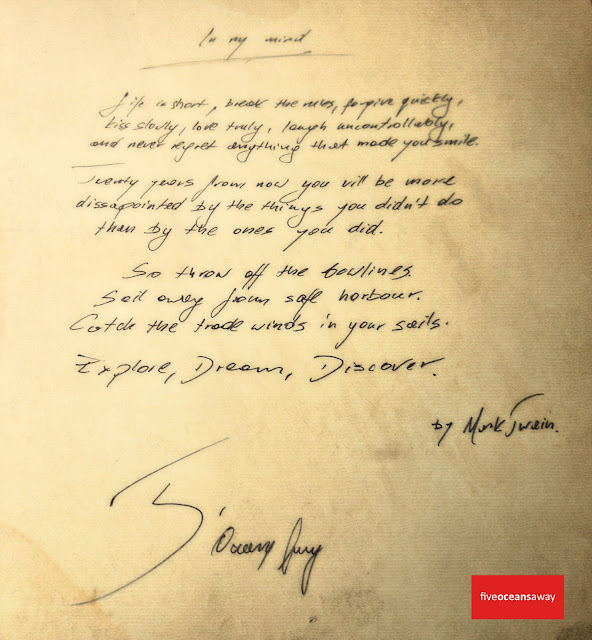 In my mind
Life is short, break the rules, forgive quickly,
kiss slowly, love truly, laugh uncontrollably,
and never regret anything that made you smile.
Twenty years from now you will be more
dissapointed by the things you didn't do
than by the ones you did.
So throw off the bowlines.
Sail away from safe harbour.
Catch the trade winds in your sails.
Explore, Dream, Discover.
by Mark Twain.
fiveoceansaway